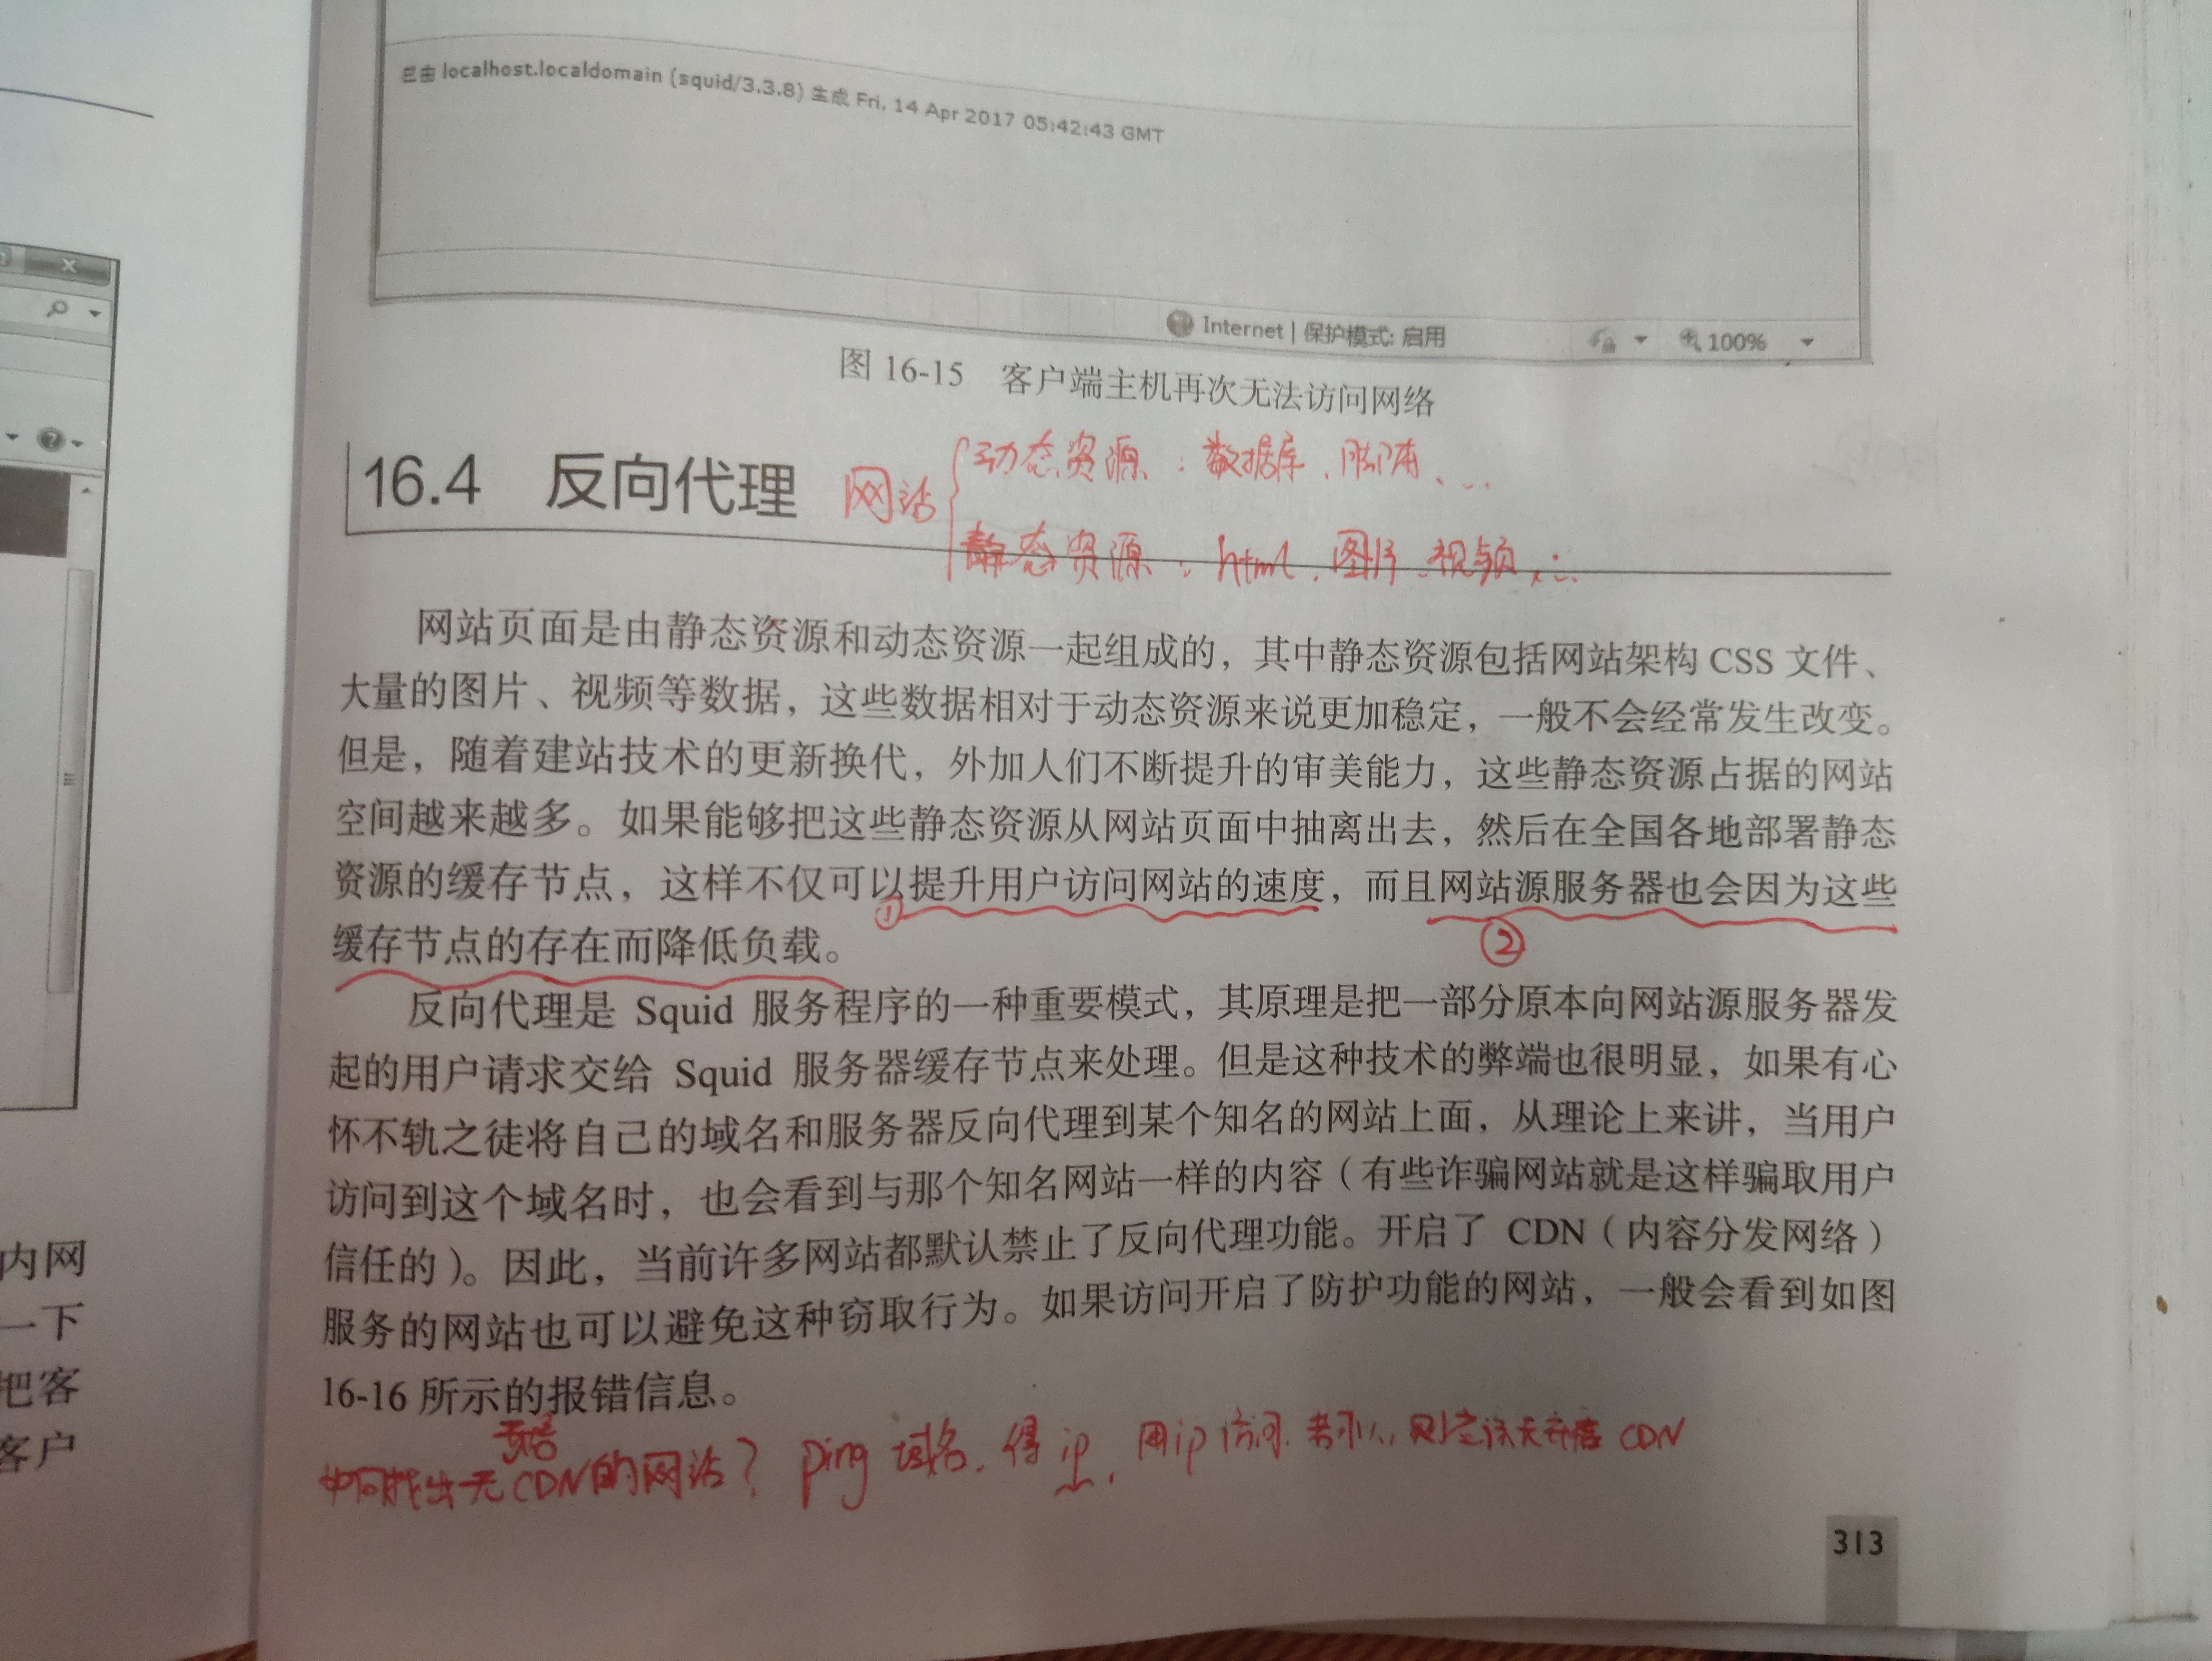 已由 localhost.localdomain (squid/3.3.8) 生成 Fri, 14 Apr 2017 05:42:43 GMT
Internet | 保护模式: 启用
100%
图 16-15 客户端主机再次无法访问网络
16.4 反向代理
网站
动态资源：数据库、脚本、...
静态资源：html、图片、视频、...
网站页面是由静态资源和动态资源一起组成的，其中静态资源包括网站架构 CSS 文件、
大量的图片、视频等数据，这些数据相对于动态资源来说更加稳定，一般不会经常发生改变。
但是，随着建站技术的更新换代，外加人们不断提升的审美能力，这些静态资源占据的网站
空间越来越多。如果能够把这些静态资源从网站页面中抽离出去，然后在全国各地部署静态
资源的缓存节点，这样不仅可以提升用户访问网站的速度，而且网站源服务器也会因为这些
①
②
缓存节点的存在而降低负载。
反向代理是 Squid 服务程序的一种重要模式，其原理是把一部分原本向网站源服务器发
起的用户请求交给 Squid 服务器缓存节点来处理。但是这种技术的弊端也很明显，如果有心
怀不轨之徒将自己的域名和服务器反向代理到某个知名的网站上面，从理论上来讲，当用户
访问到这个域名时，也会看到与那个知名网站一样的内容（有些诈骗网站就是这样骗取用户
信任的）。因此，当前许多网站都默认禁止了反向代理功能。开启了 CDN（内容分发网络）
服务的网站也可以避免这种窃取行为。如果访问开启了防护功能的网站，一般会看到如图
16-16 所示的报错信息。
如何找出无 CDN的网站？ ping 域名，得ip，用ip访问，若 CDN
313
内网
一下
把客
客户